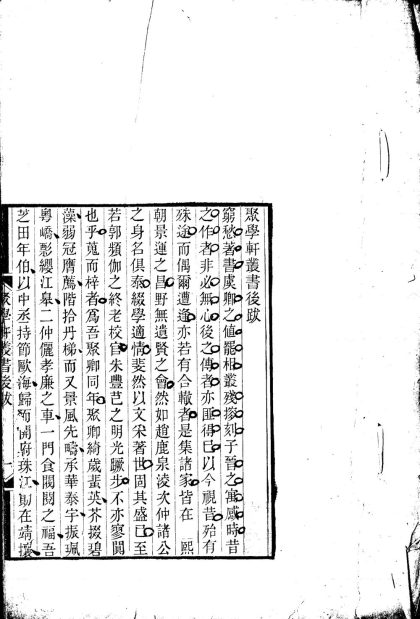 聚學軒叢書後跋
窮愁著書虞卿之値罷相叢殘掞刻子晉之寓感時昔
之作者非必無心後之傳者亦匪得已以今視昔殆有
殊途而偶爾遭逢亦若有合轍者是集諸家皆在 熙
朝景運之昌野無遺賢之會然如趙鹿泉淩次仲諸公
之身名俱泰綴學適情斐然以文宋著世固其盛已至
若郭頻伽之終老校官朱豐芑之明光蹶步不亦寥闃
也乎蒐而梓者爲吾聚卿同年聚卿綺歲蜚英芥掇碧
藻弱冠膺薦階拾丹梯而又景風先疇承華泰宇振珮
粤嶠影纓江皋二仲儷孝廉之車一門食閥閱之福吾
芝田年伯以中丞持節歐海歸而開府珠江助在靖壤
聚學軒叢書後跋 一